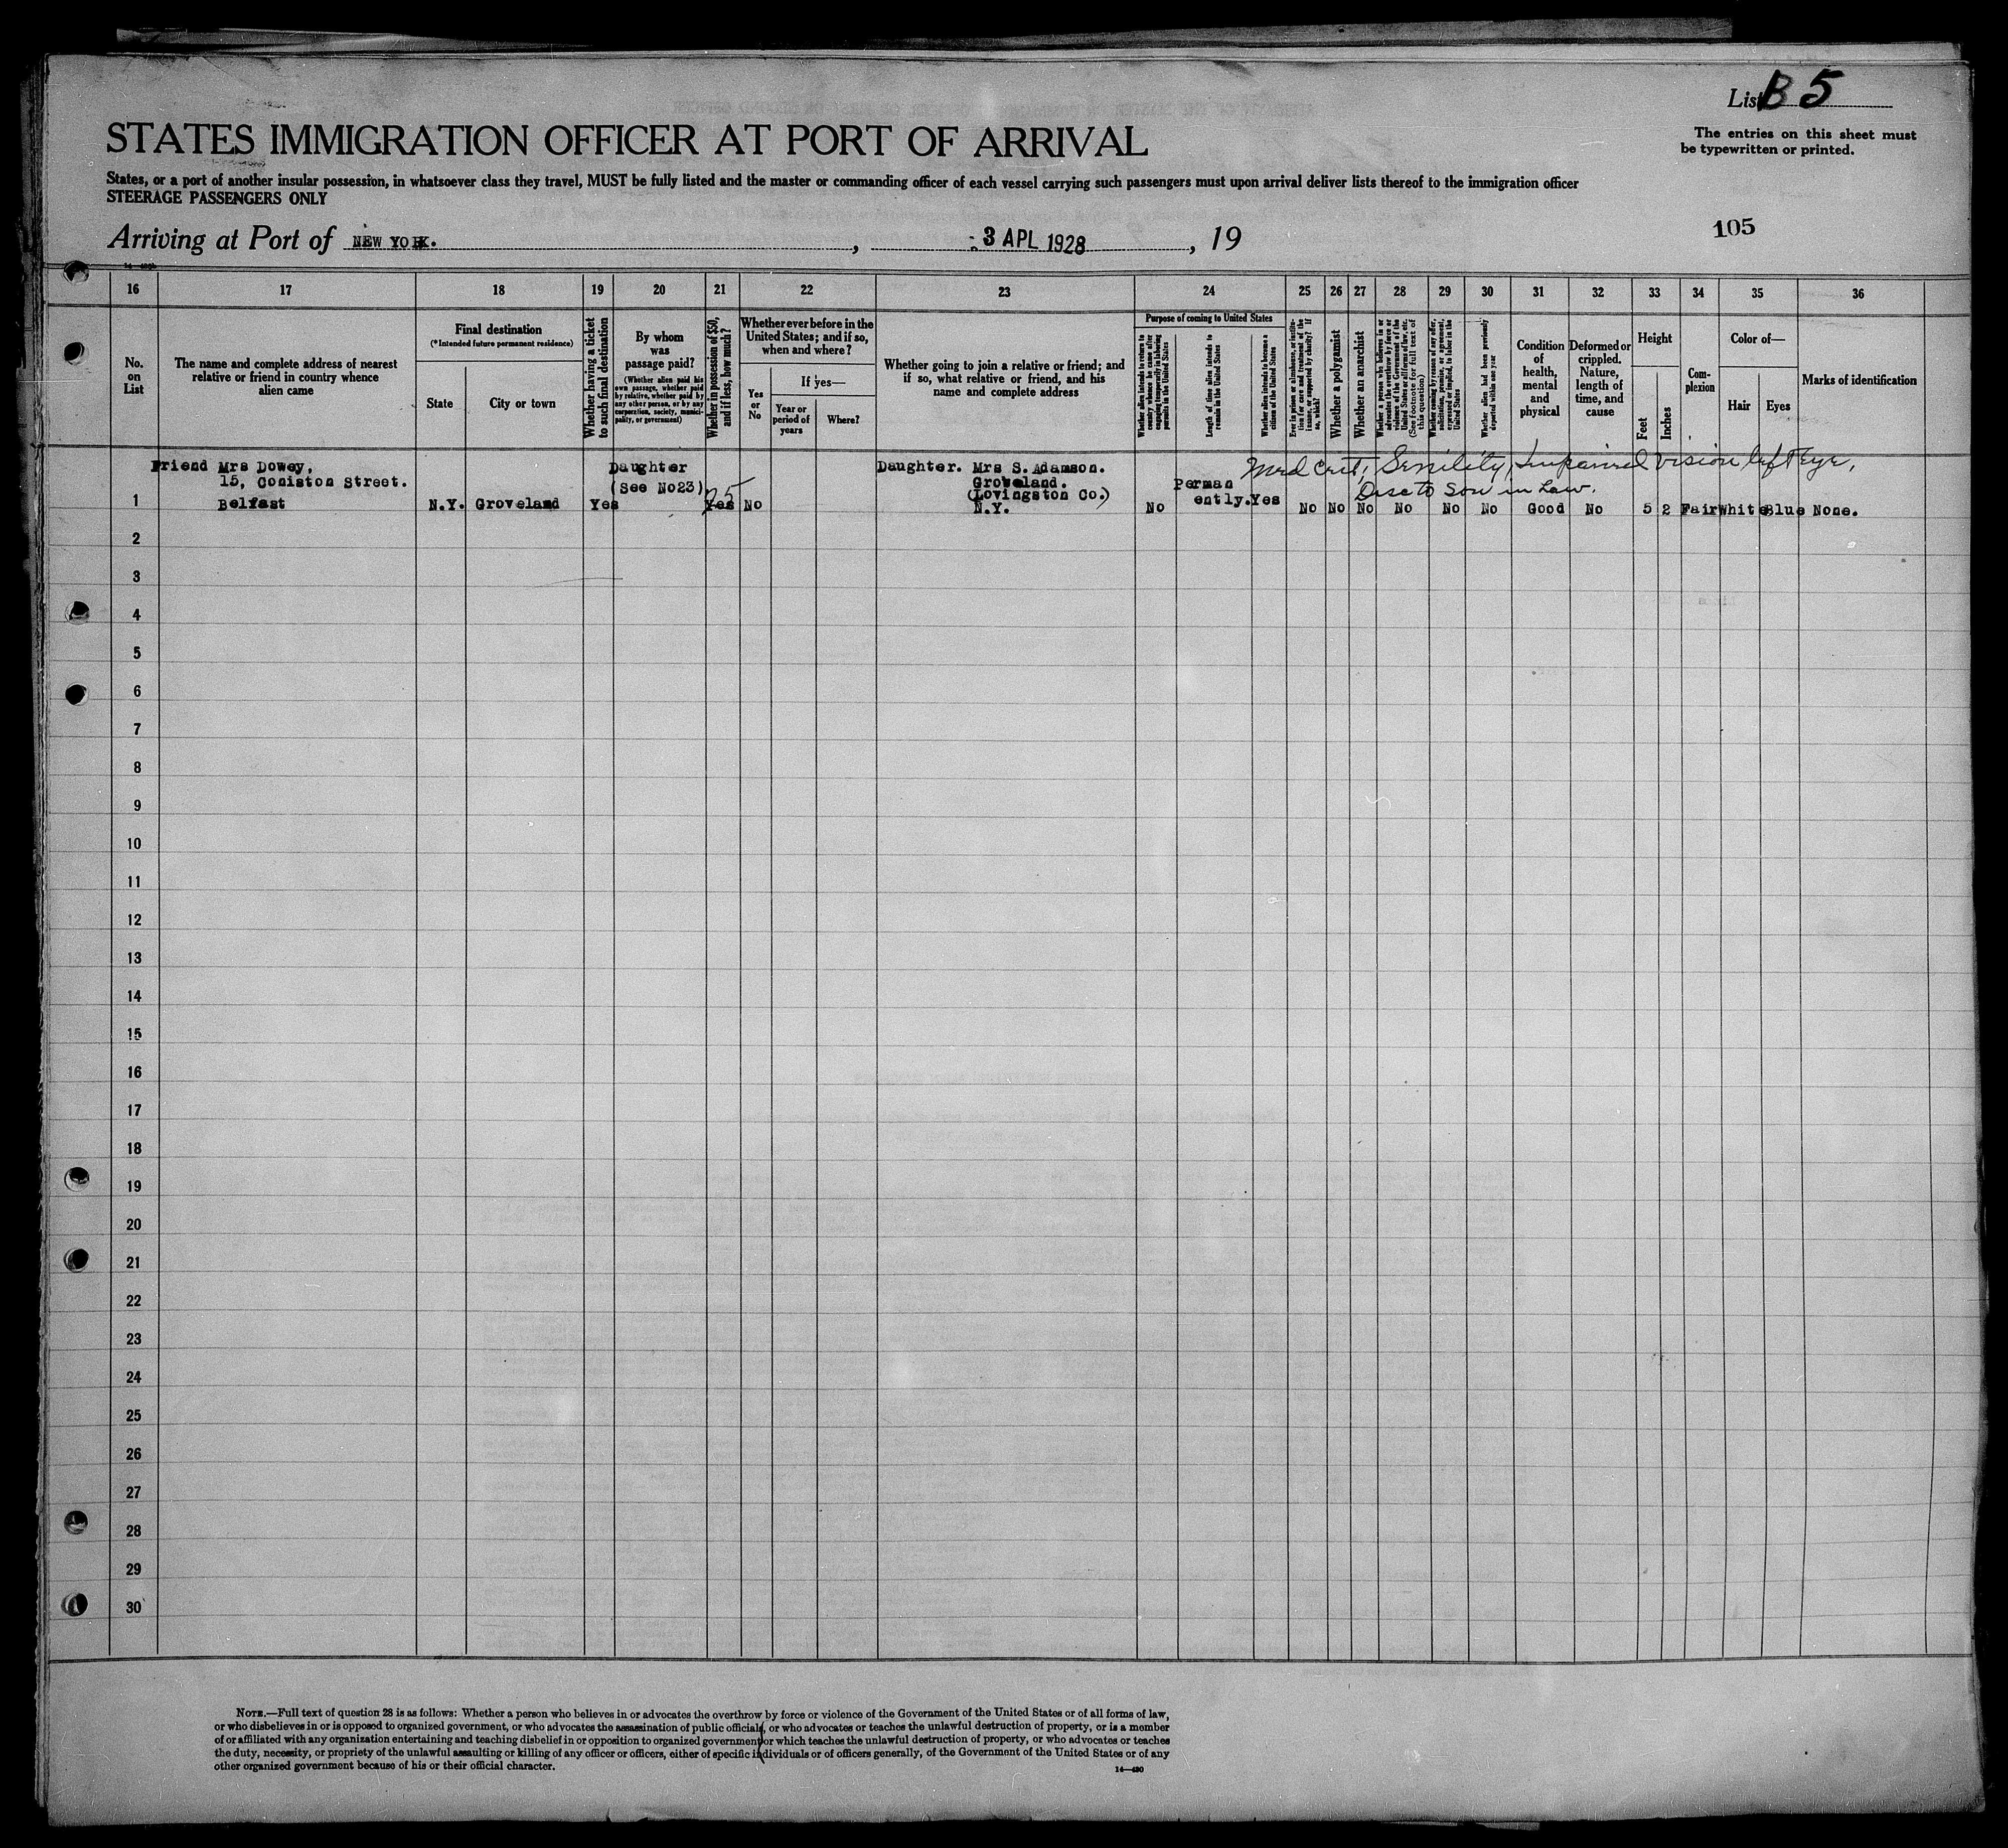 List B 5
STATES IMMIGRATION OFFICER AT PORT OF ARRIVAL
The entries on this sheet must
be typewritten or printed.
States, or a port of another insular possession, in whatsoever class they travel, MUST be fully listed and the master or commanding officer of each vessel carrying such passengers must upon arrival deliver lists thereof to the immigration officer
STEERAGE PASSENGERS ONLY
105
Arriving at Port of NEW YORK. , 3 APL 1928 , 19
16 17 18 19 20 21 22 23 24 25 26 27 28 29 30 31 32 33 34 35 36
No.
on
List
The name and complete address of nearest
relative or friend in country whence
alien came
Final destination
(*Intended future permanent residence)
State
City or town
Whether having a ticket
to such final destination
By whom
was
passage paid?
(Whether alien paid his
own passage, whether paid
by relative, whether paid by
any other person, or by any
corporation, society, munici-
pality, or government)
Whether in possession of $50,
and if less, how much?
Whether ever before in the
United States; and if so,
when and where?
Yes
or
No
If yes—
Year or
period of
years
Where?
Whether going to join a relative or friend; and
if so, what relative or friend, and his
name and complete address
Purpose of coming to United States
Whether alien intends to return to
country whence he came after
engaging temporarily in laboring
pursuits in the United States
Length of time alien intends to
remain in the United States
Whether alien intends to become a
citizen of the United States
Ever in prison or almshouse, or institu-
tion for care and treatment of the
insane, or supported by charity? If
so, which?
Whether a polygamist
Whether an anarchist
Whether a person who believes in or
advocates the overthrow by force or
violence of the Government of the
United States or all forms of law, etc.
(See footnote for full text of
this question)
Whether coming by reason of any offer,
solicitation, promise, or agreement,
expressed or implied, to labor in the
United States
Whether alien had been previously
deported within one year
Condition
of
health,
mental
and
physical
Deformed or
crippled.
Nature,
length of
time, and
cause
Height
Feet
Inches
Com-
plexion
Color of—
Hair
Eyes
Marks of identification
Med Cert; Senility, Impaired vision left Eye.
Disc to Son in Law.
Friend Mrs Dowey,
15, Coniston Street.
Belfast
1
N.Y. Groveland Yes
Daughter
(See No23)
25
Yes No
Daughter. Mrs S. Adamson.
Groveland.
(Lovingston Co.)
N.Y.
No
Perman
ently. Yes
No No No No No No Good No 5 2 Fair White Blue None.
2
3
4
5
6
7
8
9
10
11
12
13
14
15
16
17
18
19
20
21
22
23
24
25
26
27
28
29
30
NOTE.—Full text of question 28 is as follows: Whether a person who believes in or advocates the overthrow by force or violence of the Government of the United States or of all forms of law,
or who disbelieves in or is opposed to organized government, or who advocates the assassination of public officials, or who advocates or teaches the unlawful destruction of property, or is a member
of or affiliated with any organization entertaining and teaching disbelief in or opposition to organized government or which teaches the unlawful destruction of property, or who advocates or teaches
the duty, necessity, or propriety of the unlawful assaulting or killing of any officer or officers, either of specific individuals or of officers generally, of the Government of the United States or of any
other organized government because of his or their official character.
14—480